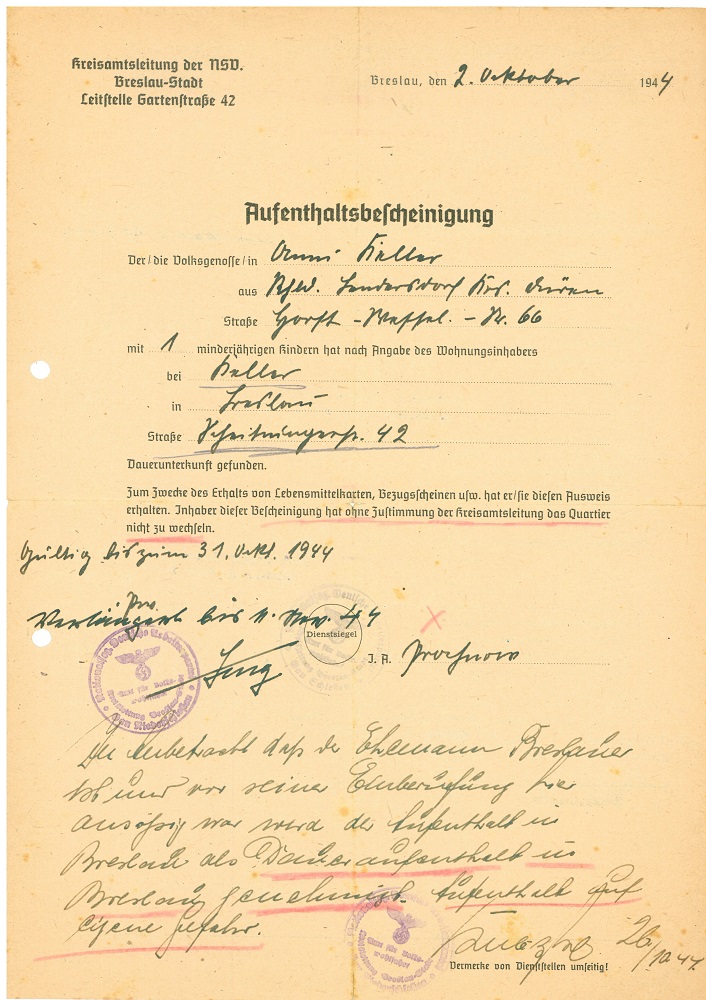 Kreisamtsleitung der NSV.
Breslau-Stadt
Leitstelle Gartenstraße 42
Breslau, den 2. Oktober 1944
Aufenthaltsbescheinigung
Der/die Volksgenosse/in Anni Keller
aus Rhld. Lendersdorf Krs. Düren
Straße Horst-Wessel.-Str. 66
mit 1 minderjährigen Kindern hat nach Angabe des Wohnungsinhabers
bei Keller
in Breslau
Straße Scheitnigerstr. 42
Dauerunterkunft gefunden.
Zum Zwecke des Erhalts von Lebensmittelkarten, Bezugscheinen usw. hat er/sie diesen Ausweis
erhalten. Inhaber dieser Bescheinigung hat ohne Zustimmung der Kreisamtsleitung das Quartier
nicht zu wechseln.
Gültig bis zum 31. Okt. 1944
Verlängert bis 11. Nov. 44
Dienstsiegel
J. A. Prochnow
In Anbetracht daß der Ehemann Breslauer
ist und vor seiner Einberufung hier
ansässig war wird der Aufenthalt in
Breslau als Daueraufenthalt in
Breslau genehmigt. Aufenthalt auf
eigene Gefahr.
26/10.44
Vermerke von Dienststellen umseitig!